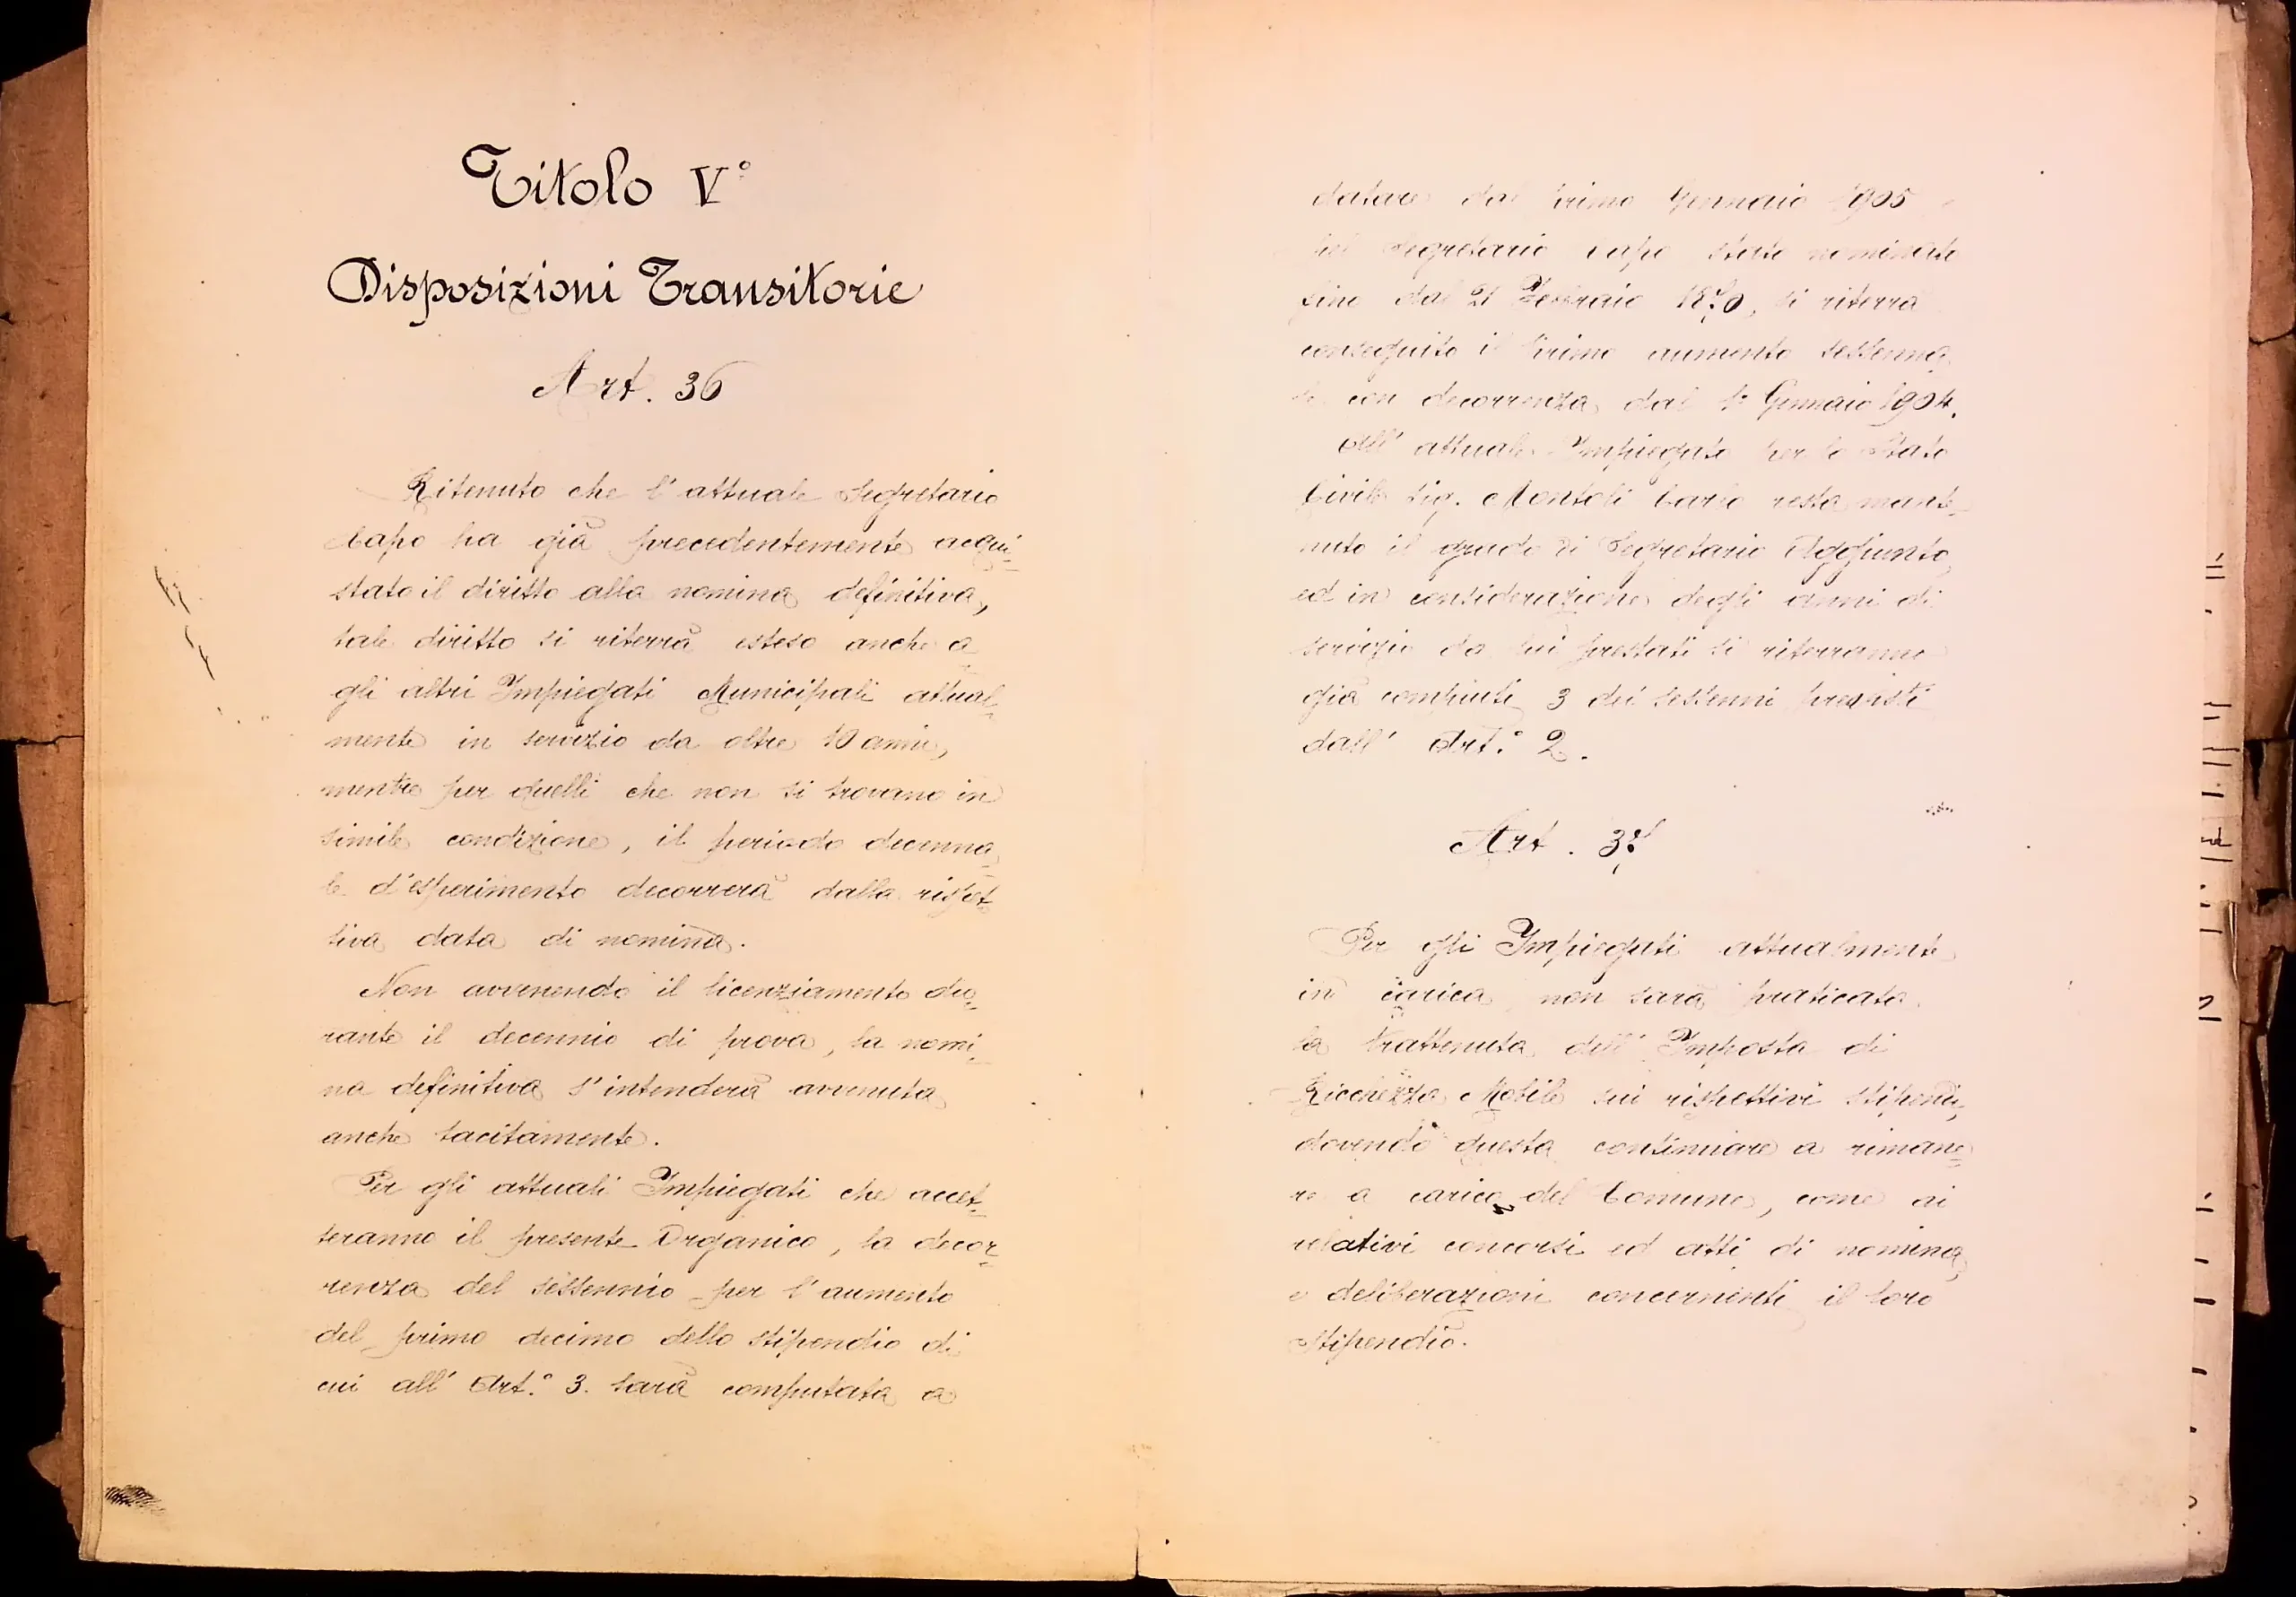 Titolo V°
Disposizioni Transitorie
Art. 36
Ritenuto che l'attuale Segretario
Capo ha già precedentemente acqui=
stato il diritto alla nomina definitiva,
tale diritto si riterrà esteso anche a
gli altri Impiegati Municipali attual=
mente in servizio da oltre 10 anni,
mentre per quelli che non si trovano in
simile condizione, il periodo decenna=
le d'esperimento decorrerà dalla rispet=
tiva data di nomina.
Non avvenendo il licenziamento du=
rante il decennio di prova, la nomi=
na definitiva s'intenderà avvenuta
anche tacitamente.
Per gli attuali Impiegati che accet=
teranno il presente Organico, la decor=
renza del sessennio per l'aumento
del primo decimo dello stipendio di
cui all' Art.° 3. sarà computata a
datare dal primo Gennaio 1905
Segretario Capo stato nominato
fino dal 21 Febbraio 1870, si riterrà
conseguito il primo aumento sessenna
le con decorrenza dal 1° Gennaio 1904.
All' attuale Impiegato per lo Stato
Civile Sig. Montoli Carlo resta mante=
nuto il grado di Segretario Aggiunto,
ed in considerazione degli anni di
servizio da lui prestati si riterranno
già compiuti 3 dei sessenni previsti
dall' Art.° 2.
Art. 37
Per gli Impiegati attualmente
in carica non sarà praticata
la trattenuta dell' Imposta di
Ricchezza Mobile sui rispettivi stipendi,
dovendo questa continuare a rimane=
re a carico del Comune, come ai
relativi concorsi ed atti di nomina,
e deliberazioni concernenti il loro
stipendio.